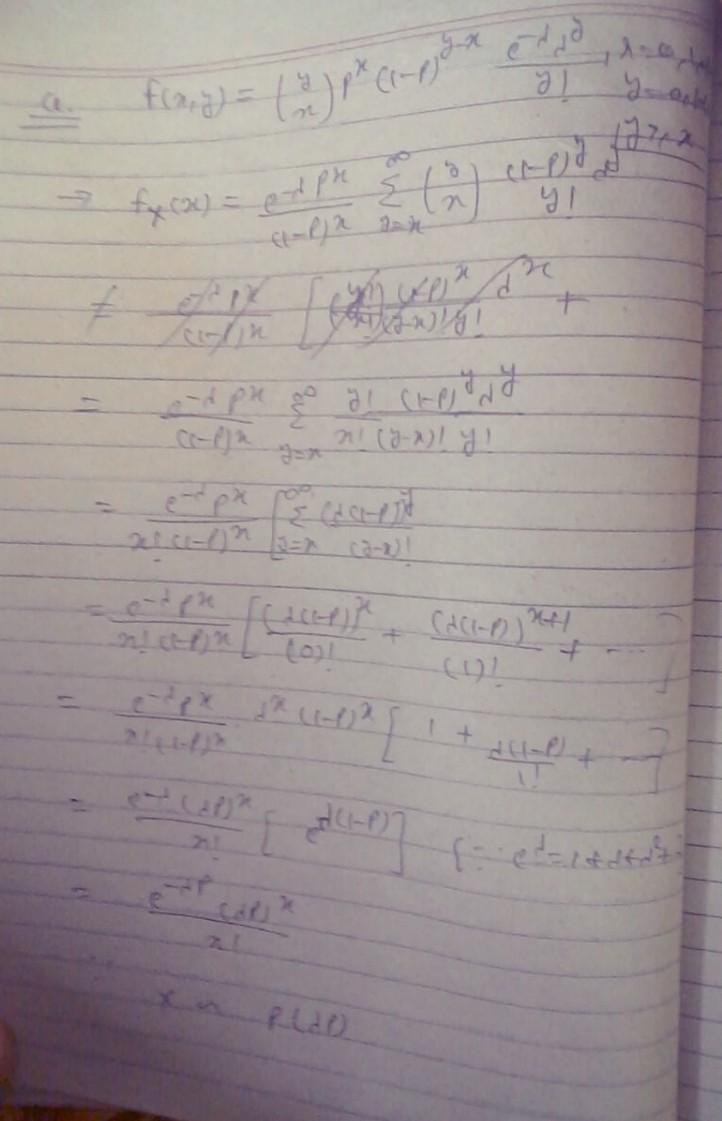 a. f(x,y) = (y x) p^x (1-p)^(y-x) e^-λ λ^y / y! , x=0,1,
y=0,1,
y ≥ x
→ f_X(x) = e^-λ p^x / (1-p)^x Σ_{y=x}^∞ (y x) (1-p)^y / y! λ^y
= e^-λ p^x / (1-p)^x Σ_{y=x}^∞ y! (1-p)^y λ^y / x! (y-x)! y!
= e^-λ p^x / x! (1-p)^x [ Σ_{y=x}^∞ (λ(1-p))^y / (y-x)!
= e^-λ p^x / x! (1-p)^x [ (λ(1-p))^x / (0)! + (λ(1-p))^(x+1) / (1)! + ---- ]
= e^-λ p^x / x! (1-p)^x λ^x (1-p)^x [ 1 + λ(1-p) / 1! + --- ]
= e^-λ (λp)^x / x! [ e^λ(1-p) ] { ∵ e^λ = 1+λ+λ²+
= e^-λp (λp)^x / x!
∴ x ~ P(λp)